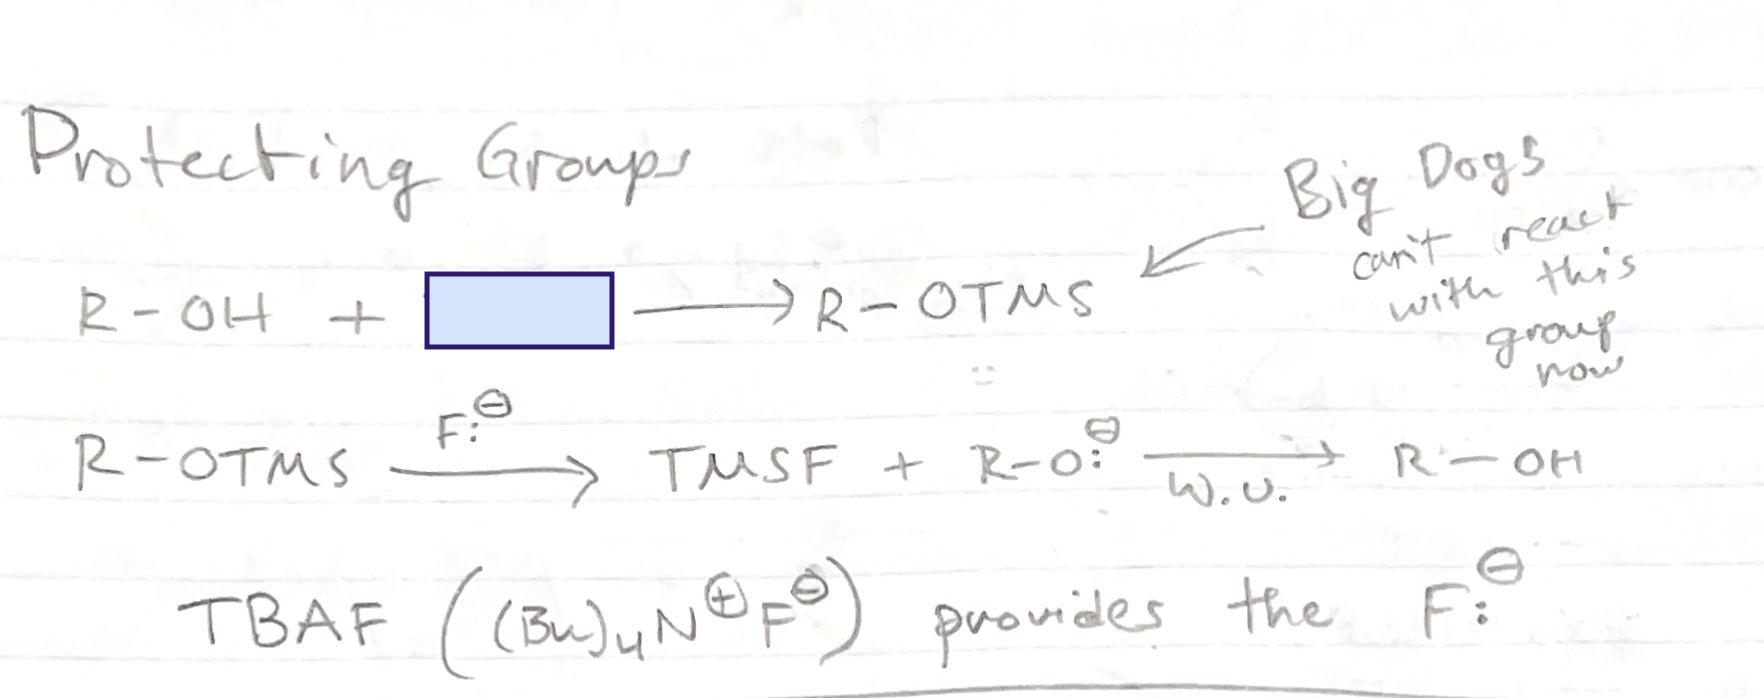 Protecting Groups
Big Dogs
can't react
with this
group
now
R-OH + ⟶ R-OTMS
F:⊖
R-OTMS ⟶ TMSF + R-O:⊖ ⟶ R-OH
W.U.
TBAF ((Bu)₄N⊕F⊖) provides the F:⊖